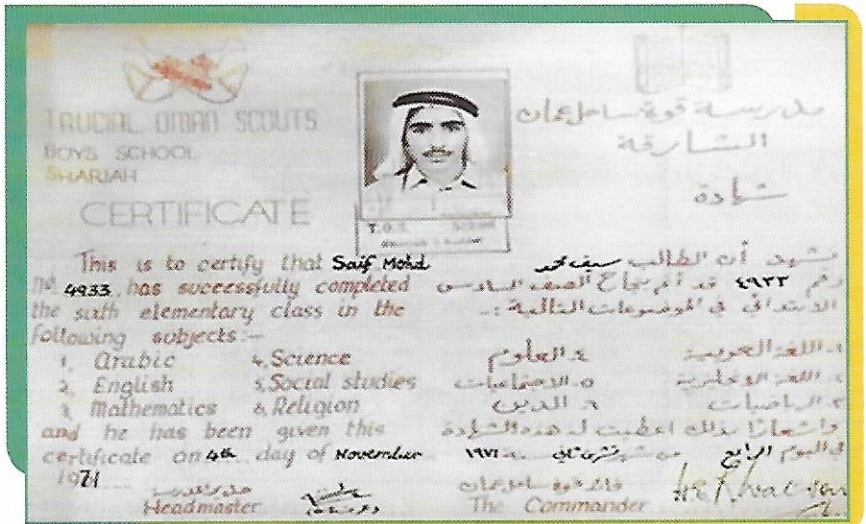 TRUCIAL OMAN SCOUTS
BOYS SCHOOL
SHARJAH
CERTIFICATE
مدرسة قوة ساحل عمان
الشارقة
شهادة
T.O.S.
This is to certify that Saif Mohd
no. 4933 has successfully completed
the sixth elementary class in the
following subjects:-
1. Arabic 4. Science
2. English 5. Social studies
3. Mathematics 6. Religion
and he has been given this
certificate on 4th day of November
1971
Headmaster
The Commander
نشهد أن الطالب سيف محمد
رقم ٤٩٣٣ قد أتم بنجاح الصف السادس
الابتدائي في الموضوعات التالية :-
١- اللغة العربية ٤- العلوم
٢- اللغة الإنجليزية ٥- الاجتماعيات
٣- الرياضيات ٦- الدين
وإشعارًا بذلك اعطيت له هذه الشهادة
في اليوم الرابع من شهر تشرين ثاني ١٩٧١
قائد قوة ساحل عمان